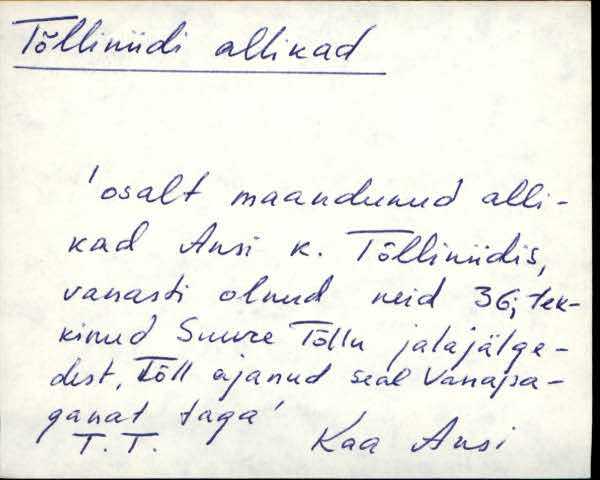 Tõlliniidi allikad
'osalt maandunud alli-
kad Ansi k. Tõlliniidis,
vanasti olnud neid 36; tek-
kinud Suure Tõllu jalajälge-
dest, Tõll ajanud seal Vanapa-
ganat taga'
T. T. Kaa Ansi